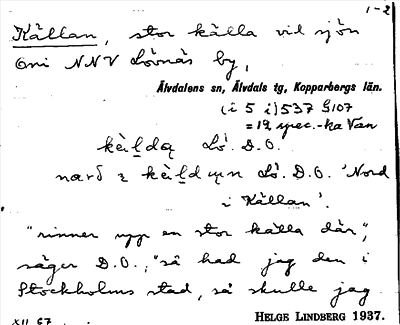 1-2
Källan, stor källa vid sjön
Oni NNV Lövnäs by,
Älvdalens sn, Älvdals tg, Kopparbergs län.
(i 5 i) 537 §107
= 19 spec.-ka Van
Lö. D.O.
Lö. D.O. 'Nord
i Källan'.
"rinner upp en stor källa där",
säger D.O., "så had jag den i
Stockholms stad, så skulle jag
XII 67. HELGE LINDBERG 1937.